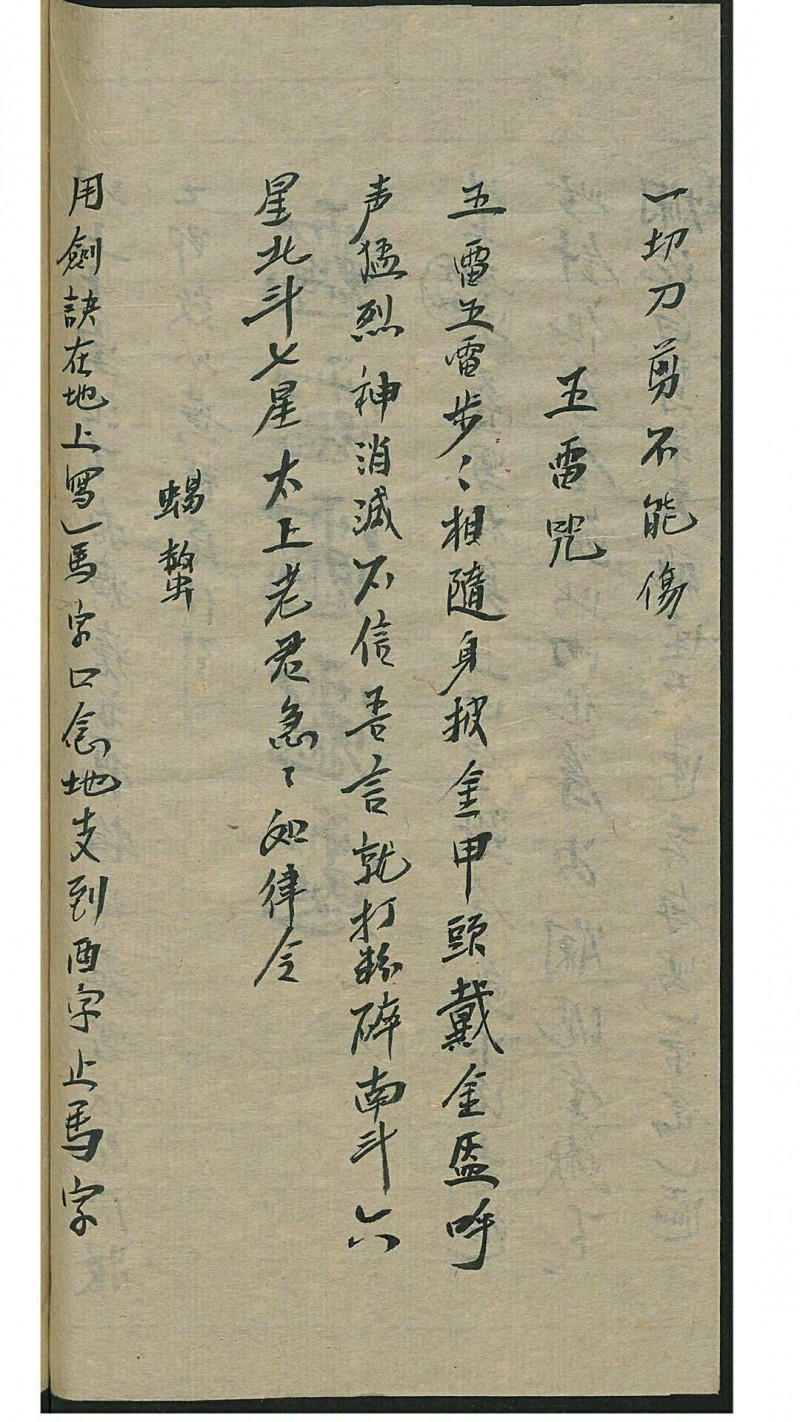 一切刀剪不能傷
五雷咒
五雷五雷步〻相隨身披金甲頭戴金盔呼
声猛烈神消滅不信吾言就打粉碎南斗六
星北斗七星太上老君急〻如律令
蝎螫
用劍訣在地上写一馬字口念地支到酉字止馬字